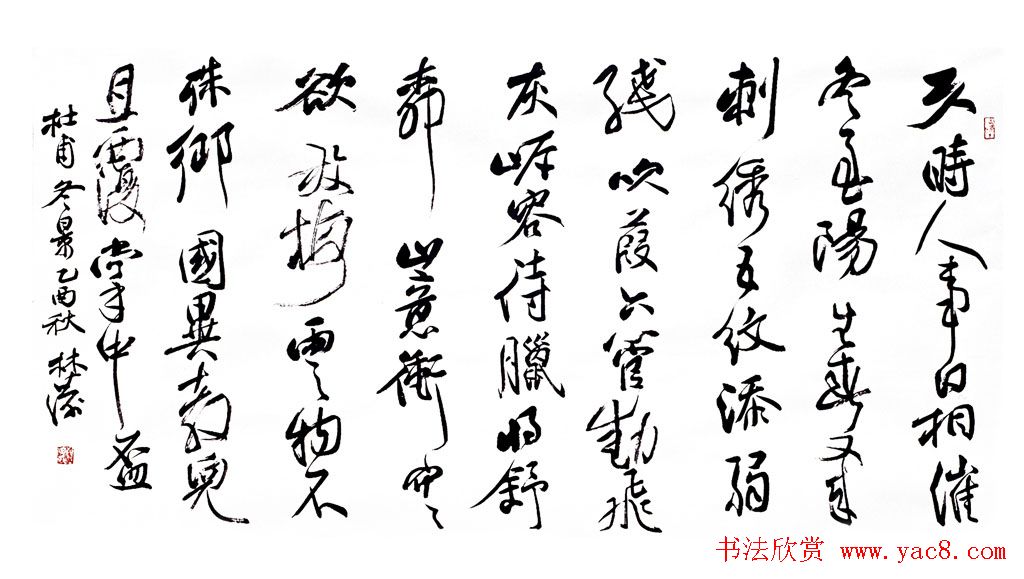 天時人事日相催
冬至陽生春又來
刺綉五紋添弱
綫吹葭六管動飛
灰岸容待臘將舒
柳山意衝寒
欲放梅雲物不
殊鄉國異教兒
且覆掌中盃
杜甫冬景乙酉秋林
书法欣赏 www.yac8.com